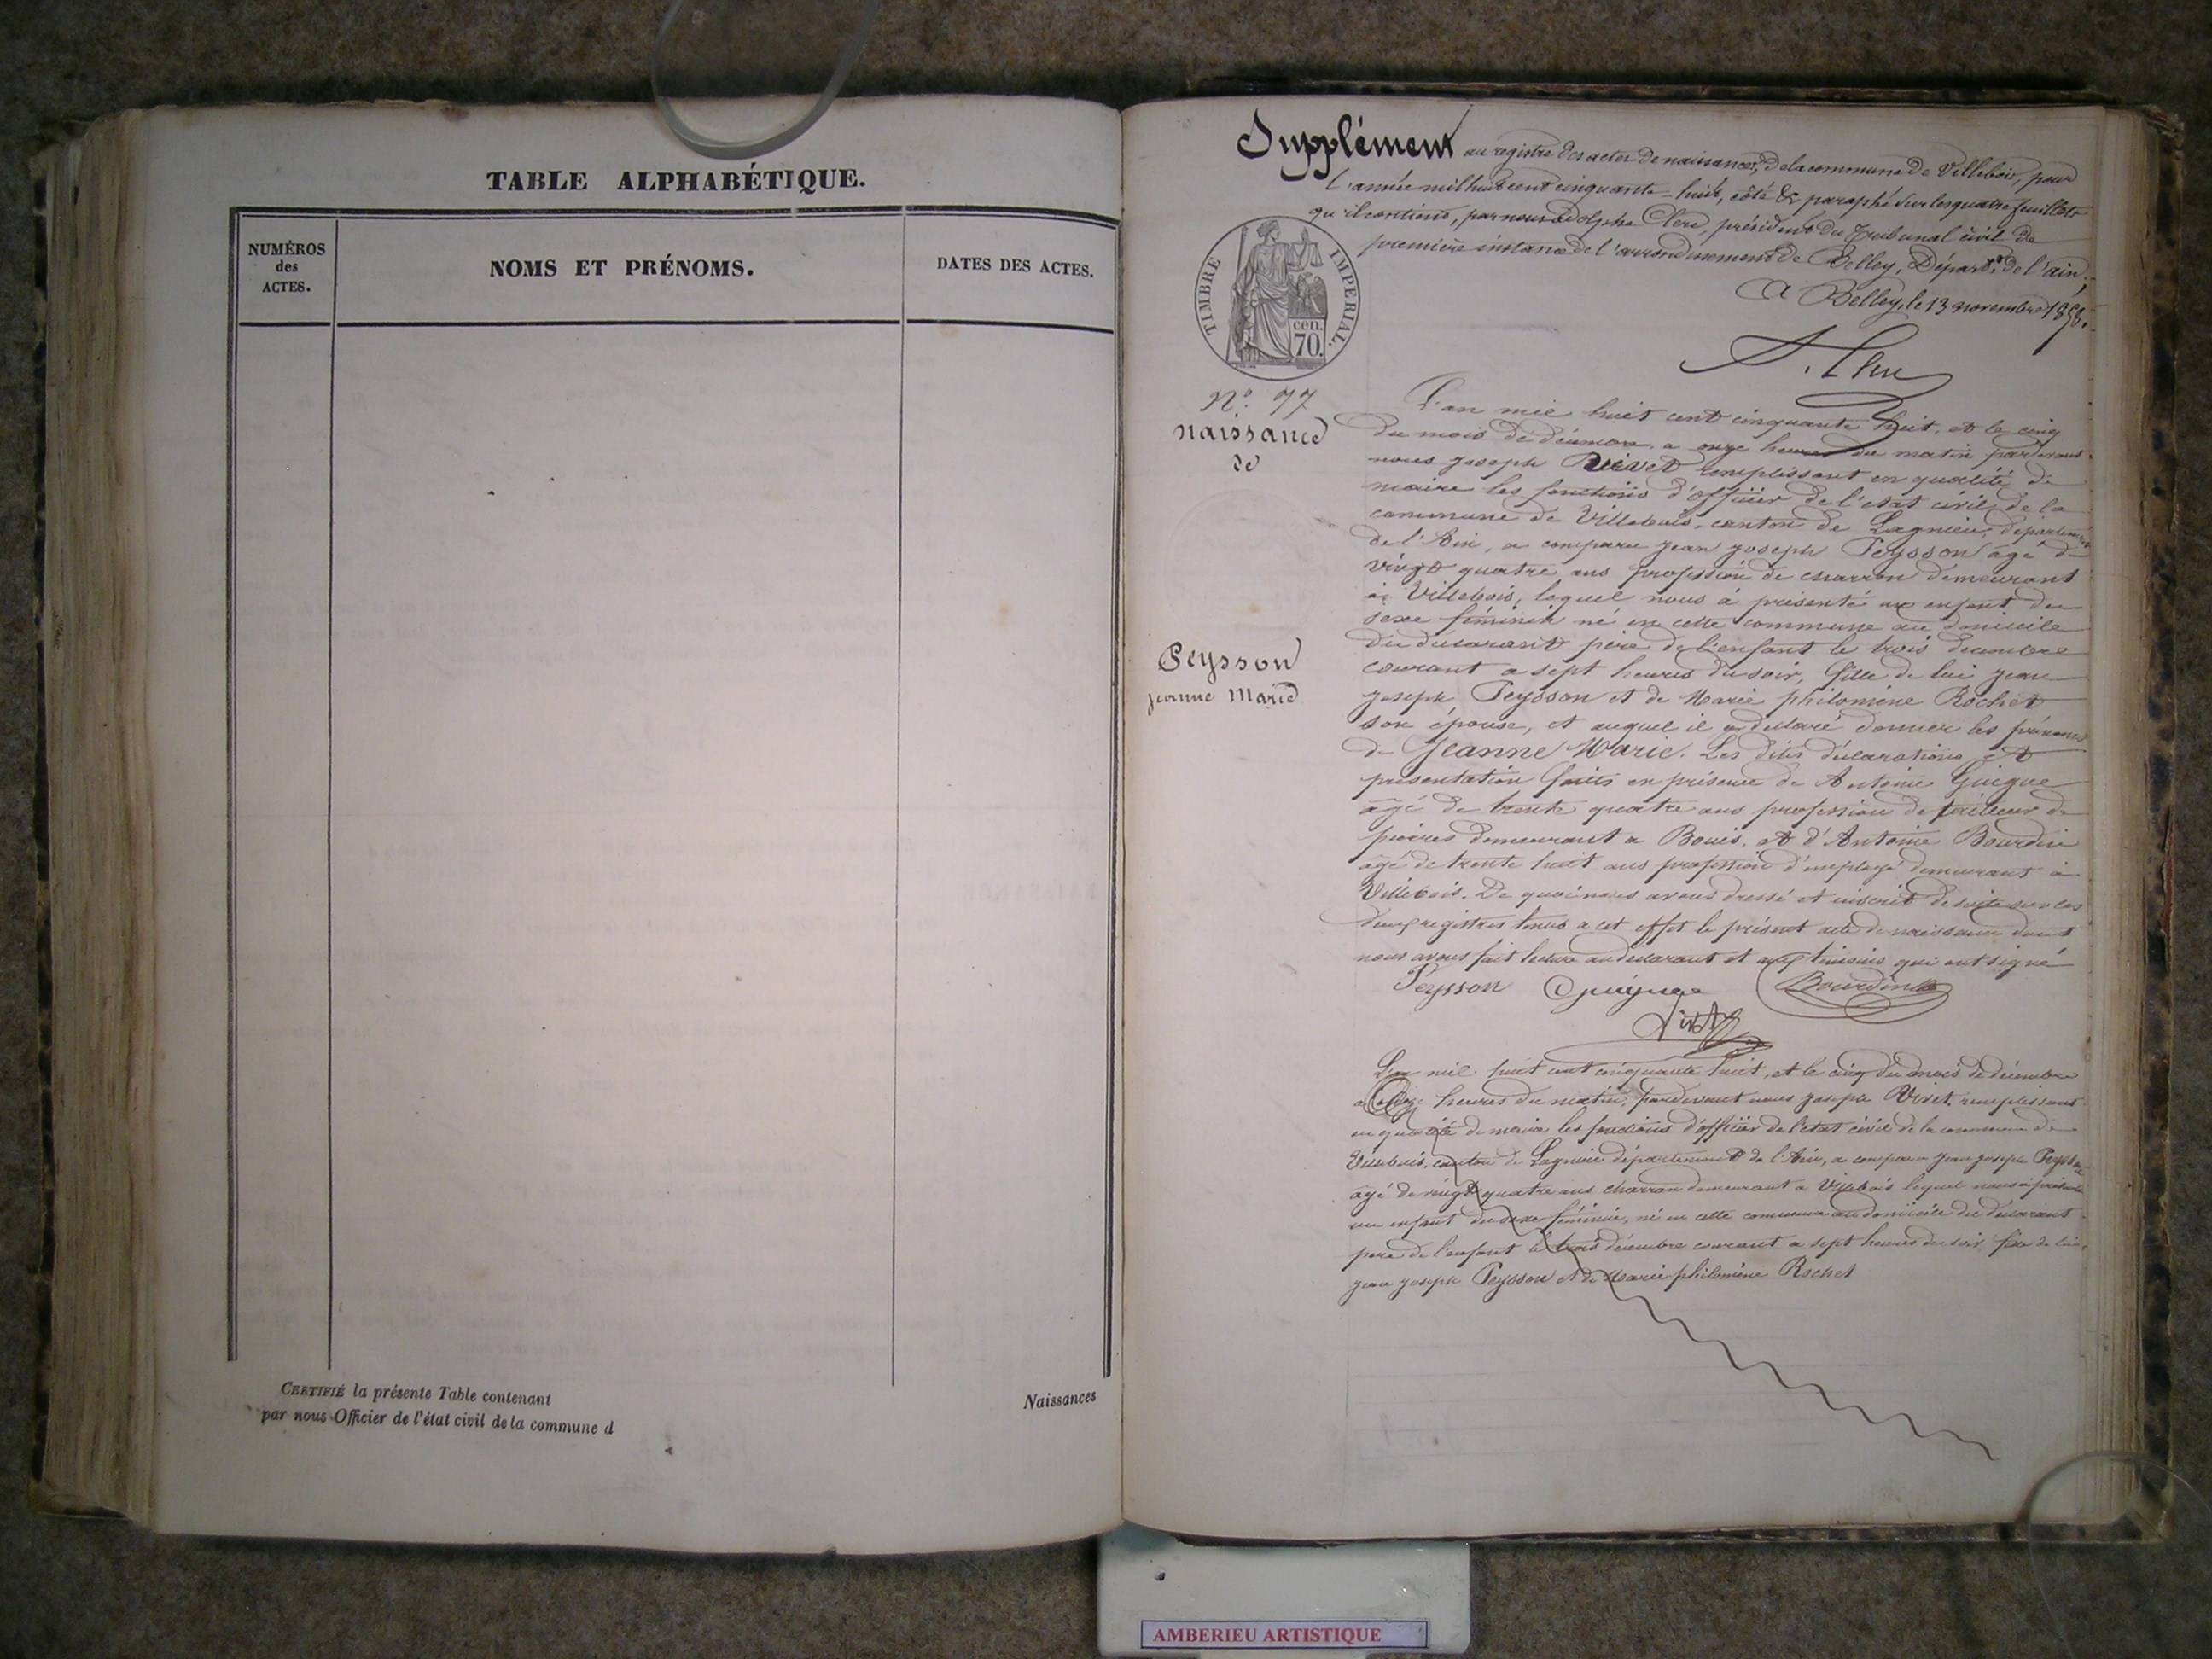 TABLE ALPHABÉTIQUE.
NUMÉROS
des
ACTES.
NOMS ET PRÉNOMS.
DATES DES ACTES.
CERTIFIÉ la présente Table contenant
Naissances
par nous Officier de l'état civil de la commune d
Supplément au registre des actes de naissances, de la commune de Villebois, pour
l'année mil huit cent cinquante-huit, côté & paraphé sur les quatre feuillets
qu'il contient, par nous Adolphe Clerc, président du Tribunal civil de
première instance de l'arrondissement de Belley, Départ.t de l'ain,
A Belley, le 13 novembre 1858.
TIMBRE IMPERIAL.
cen.
70.
N.º 77
naissance
de
Peysson
jeanne Marie
L'an mil huit cent cinquante huit, et le cinq
du mois de décembre a onze heures du matin pardevant
nous joseph Vivet remplissant en qualité de
maire les fonctions d'officier de l'etat civil de la
commune de Villebois, canton de Lagnieu, département
de l'Ain, a comparu jean joseph Peysson âgé de
vingt quatre ans profession de charron demeurant
à Villebois, lequel nous à présenté un enfant du
sexe féminin né en cette commune au domicile
du déclarant père de l'enfant le trois décembre
courant a sept heures du soir, fille de lui jean
joseph Peysson et de Marie philomène Rochet
son épouse, et auquel il a déclaré donner les prénoms
de Jeanne Marie. Les dites déclarations et
présentation faites en présence de Antoine Guigue
âgé de trente quatre ans profession de tailleur de
pierres demeurant a Bouis, et d'Antoine Bourdin
âgé de trente huit ans profession d'employé demeurant à
Villebois. De quoi nous avons dressé et inscrit de suite sur les
deux registres tenus a cet effet le présent acte de naissance dont
nous avons fait lecture au déclarant et aux témoins qui ont signé
Peysson Guigue Bourdin
Vivet
L'an mil huit cent cinquante huit, et le cinq du mois de décembre
a onze heures du matin, pardevant nous joseph Vivet remplissant
en qualité de maire les fonctions d'officier de l'etat civil de la commune de
Villebois, canton de Lagnieu département de l'Ain, a comparu jean joseph Peysson
âgé de vingt quatre ans charron demeurant a Villebois lequel nous a présenté
un enfant du sexe féminin, né en cette commune au domicile du déclarant
père de l'enfant le trois décembre courant a sept heures du soir fille de lui
jean joseph Peysson et de Marie philomène Rochet
AMBERIEU ARTISTIQUE